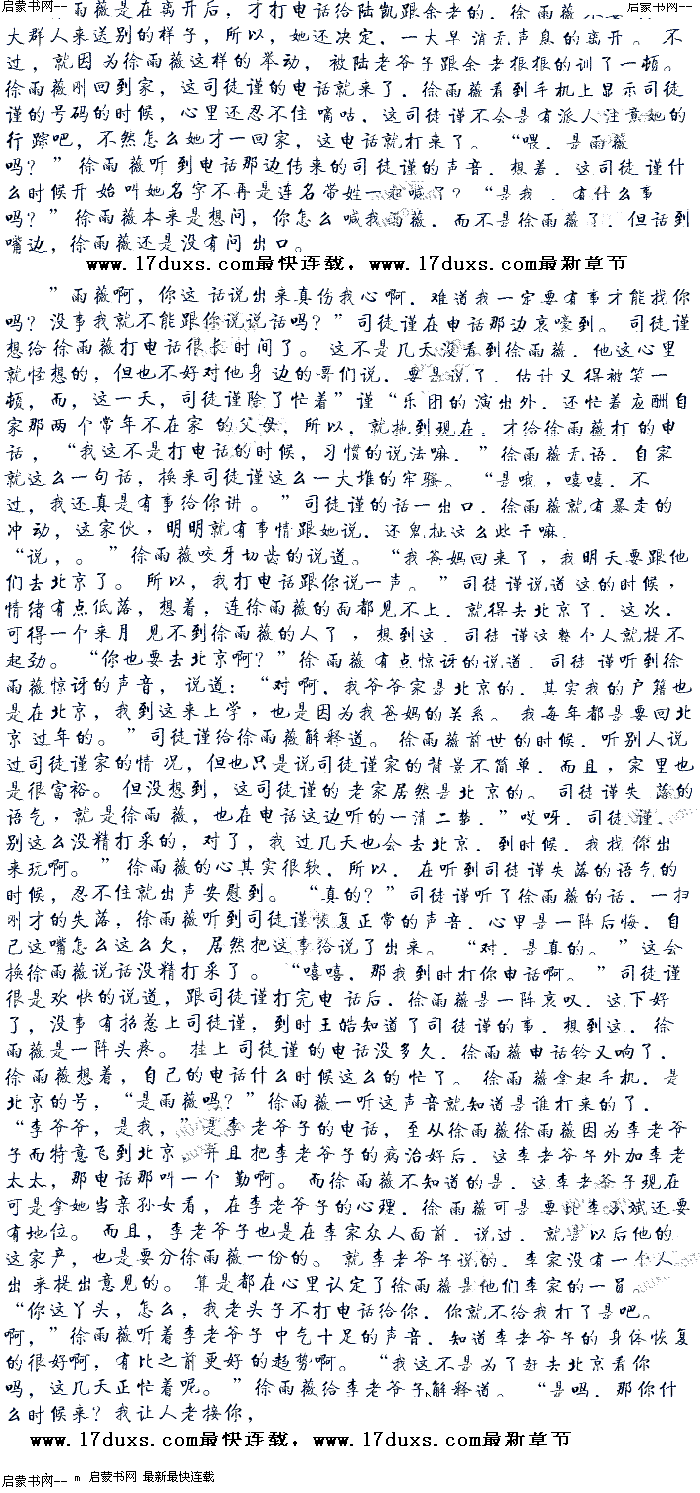 启蒙书网-- 雨薇是在离开后，才打电话给陆凯跟余老的．徐雨薇 启蒙书网--
大群人来送别的样子，所以，她还决定．一大早 消无声息的离开。 不
过，就因 为徐雨薇这样的 举动， 被陆老爷子跟余 老狠狠的训了一顿。
徐雨薇刚回到家，这司徒谨的电话就来了．徐雨薇看到手机上显示司徒
谨的号码的时候，心里还忍不住 嘀咕．这司徒谨不会是有派人注意她的
行 踪吧，不然怎么她才一回家，这电话就打来了。 “喂．是雨薇
吗？” 徐雨 薇听 到电话那边传来的司徒谨的声音．想着．这司徒 谨什
么时候开 始 叫她名字不再是连名带姓一起喊了？“是我 ．有什么事
吗？” 徐雨薇本来是想问，你怎么 喊我雨薇．而不是徐雨薇了．但话到
嘴边，徐雨薇还是没有问 出口。
www.17duxs.com最快连载，www.17duxs.com最新章节
”雨薇啊，你这 话说出来真伤我心啊．难道我一定要有事才能找你
吗？没事我就不能跟你说说话吗？”司徒谨在电话那边哀嚎到。 司徒谨
想给 徐雨薇打电话很长 时间了。 这不是几天没看到徐雨薇．他这心里
就怪想的，但也不好对他身 边的哥们说．要是说了．估计又 得被笑一
顿，而，这一天，司徒谨除了忙着”谨“乐团的 演出外．还忙着应酬自
家那两 个常年不在家 的父母，所以，就拖到现在．才给徐雨薇打 的电
话 ，“我这不是打电话的时候，习惯的说法嘛．”徐雨薇无语．自家
就这么一句话，换来司徒谨这么一大堆的牢骚。 “是哦，嘻嘻．不
过，我还真是有事给你讲。 ”司徒谨的话一出口．徐雨薇就有暴走的
冲 动，这家伙，明明就有事情跟她说．还鬼扯这么些干嘛．
“说，。 ”徐雨薇咬牙切齿的说道。 “我爸妈回来了，我明天要跟他
们去北京了。 所以，我打电话跟你说一声。 ”司徒谨说道 这的时候，
情绪有点低落，想着，连徐雨薇的面都见不上．就得去北京了．这次．
可得一个来月 见不到徐雨薇的人了 ，想到这．司徒 谨这整个人就提不
起劲。 “你也要去北京啊？”徐雨薇 有点惊讶的说道．司徒 谨听到徐
雨薇惊讶的声音， 说道：“对啊．我爷爷家是北京的．其实我的户籍也
是在北京，我到这来上学，也是因为我爸妈的关系。 我每年都是要回北
京 过年的。 ”司徒谨给徐雨薇解释道。 徐雨薇前世的时候．听别人说
过司徒谨家的情 况，但也只是说司徒谨家的背景不简单．而且，家里也
是很富裕。 但没想到，这司徒谨的老家居然是北京的。 司徒谨失 落的
语气，就是徐雨 薇，也在电话这边听的一清二楚．”哎呀．司徒 谨．
别这么没精打采的，对了，我 过几天也会去北京．到时候．我找 你出
来玩啊。 ” 徐雨薇的心其实很软．所以． 在听到司徒谨失落的语气的
时候，忍不住就出声安慰到。 “真的？”司徒谨听了徐雨薇的话．一扫
刚才的失落，徐雨薇听到司徒谨恢复正常的声音．心里是一阵后悔．自
己这嘴怎么这么欠， 居然把这事给说了出来。 “对．是真的。 ”这会
换徐雨薇说话没精打采了。 “嘻嘻．那我到时打你电话啊。 ”司徒谨
很是欢 快的说道，跟司徒谨打完电 话后．徐雨薇是一阵哀叹．这下好
了，没事 有招惹上司徒谨，到时王皓知道了司徒谨的事．想到这．徐
雨薇是一阵头疼。 挂上 司徒谨 的电话没多久．徐雨薇电话铃又响了．
徐雨薇想着，自己的电话什么时候这么的 忙了。 徐雨薇拿起手机．是
北京的号，“是雨薇吗？”徐雨薇一听这声音就知道是谁打来的了．
“李爷爷，是我，”是李 老爷子的电话，至从徐雨薇徐雨薇因为李老爷
子而特意飞到北京．并且 把李老爷子的病治好后．这李老爷子外加李老
太太，那电话那叫一个 勤啊。 而徐雨薇不知道的是．这李老爷子现在
可是拿她当亲孙女看，在李老爷子的心理．徐雨薇可是 要比李 斌还要
有地位。 而且，李老爷子也是在李家众人面前．说过．就是以后他的
这家产，也是要分徐雨薇一份的。 就 李老爷子说的．李家没有一个人
出 来提出意见的。 算是都在心里认定了徐雨薇是他们李家的一员
“你这丫头，怎么，我老头子不打电话给你．你就不给我打了是吧。
啊，”徐雨薇听着李老爷子 中气十足的声音．知道李老爷子的 身体恢复
的很好啊，有比之前更好 的趋势啊。 “我这不是 为了赶去北京看你
吗，这几天正忙着呢。 ”徐雨薇给李老爷子解释道。 “是吗．那你什
么时候来？我让人老接你，
www.17duxs.com最快连载，www.17duxs.com最新章节
启蒙书网-- m 启蒙书网 最新最快连载 启蒙书网--